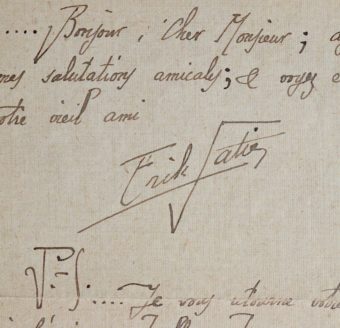 ..... Bonjour, Cher Monsieur ; a
mes salutations amicales ; & voyez e
otre vieil ami
Erik Satie
P.-S. .... Je vous retourne votre